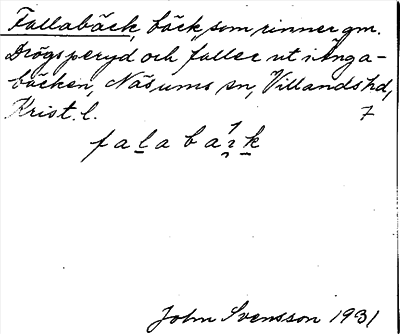 Fallabäck, bäck, som rinner gm.
Drögsperyd och faller ut i Ånga-
bäcken, Näsums sn, Villands hd,
Krist. l. 7
John Svensson 1931